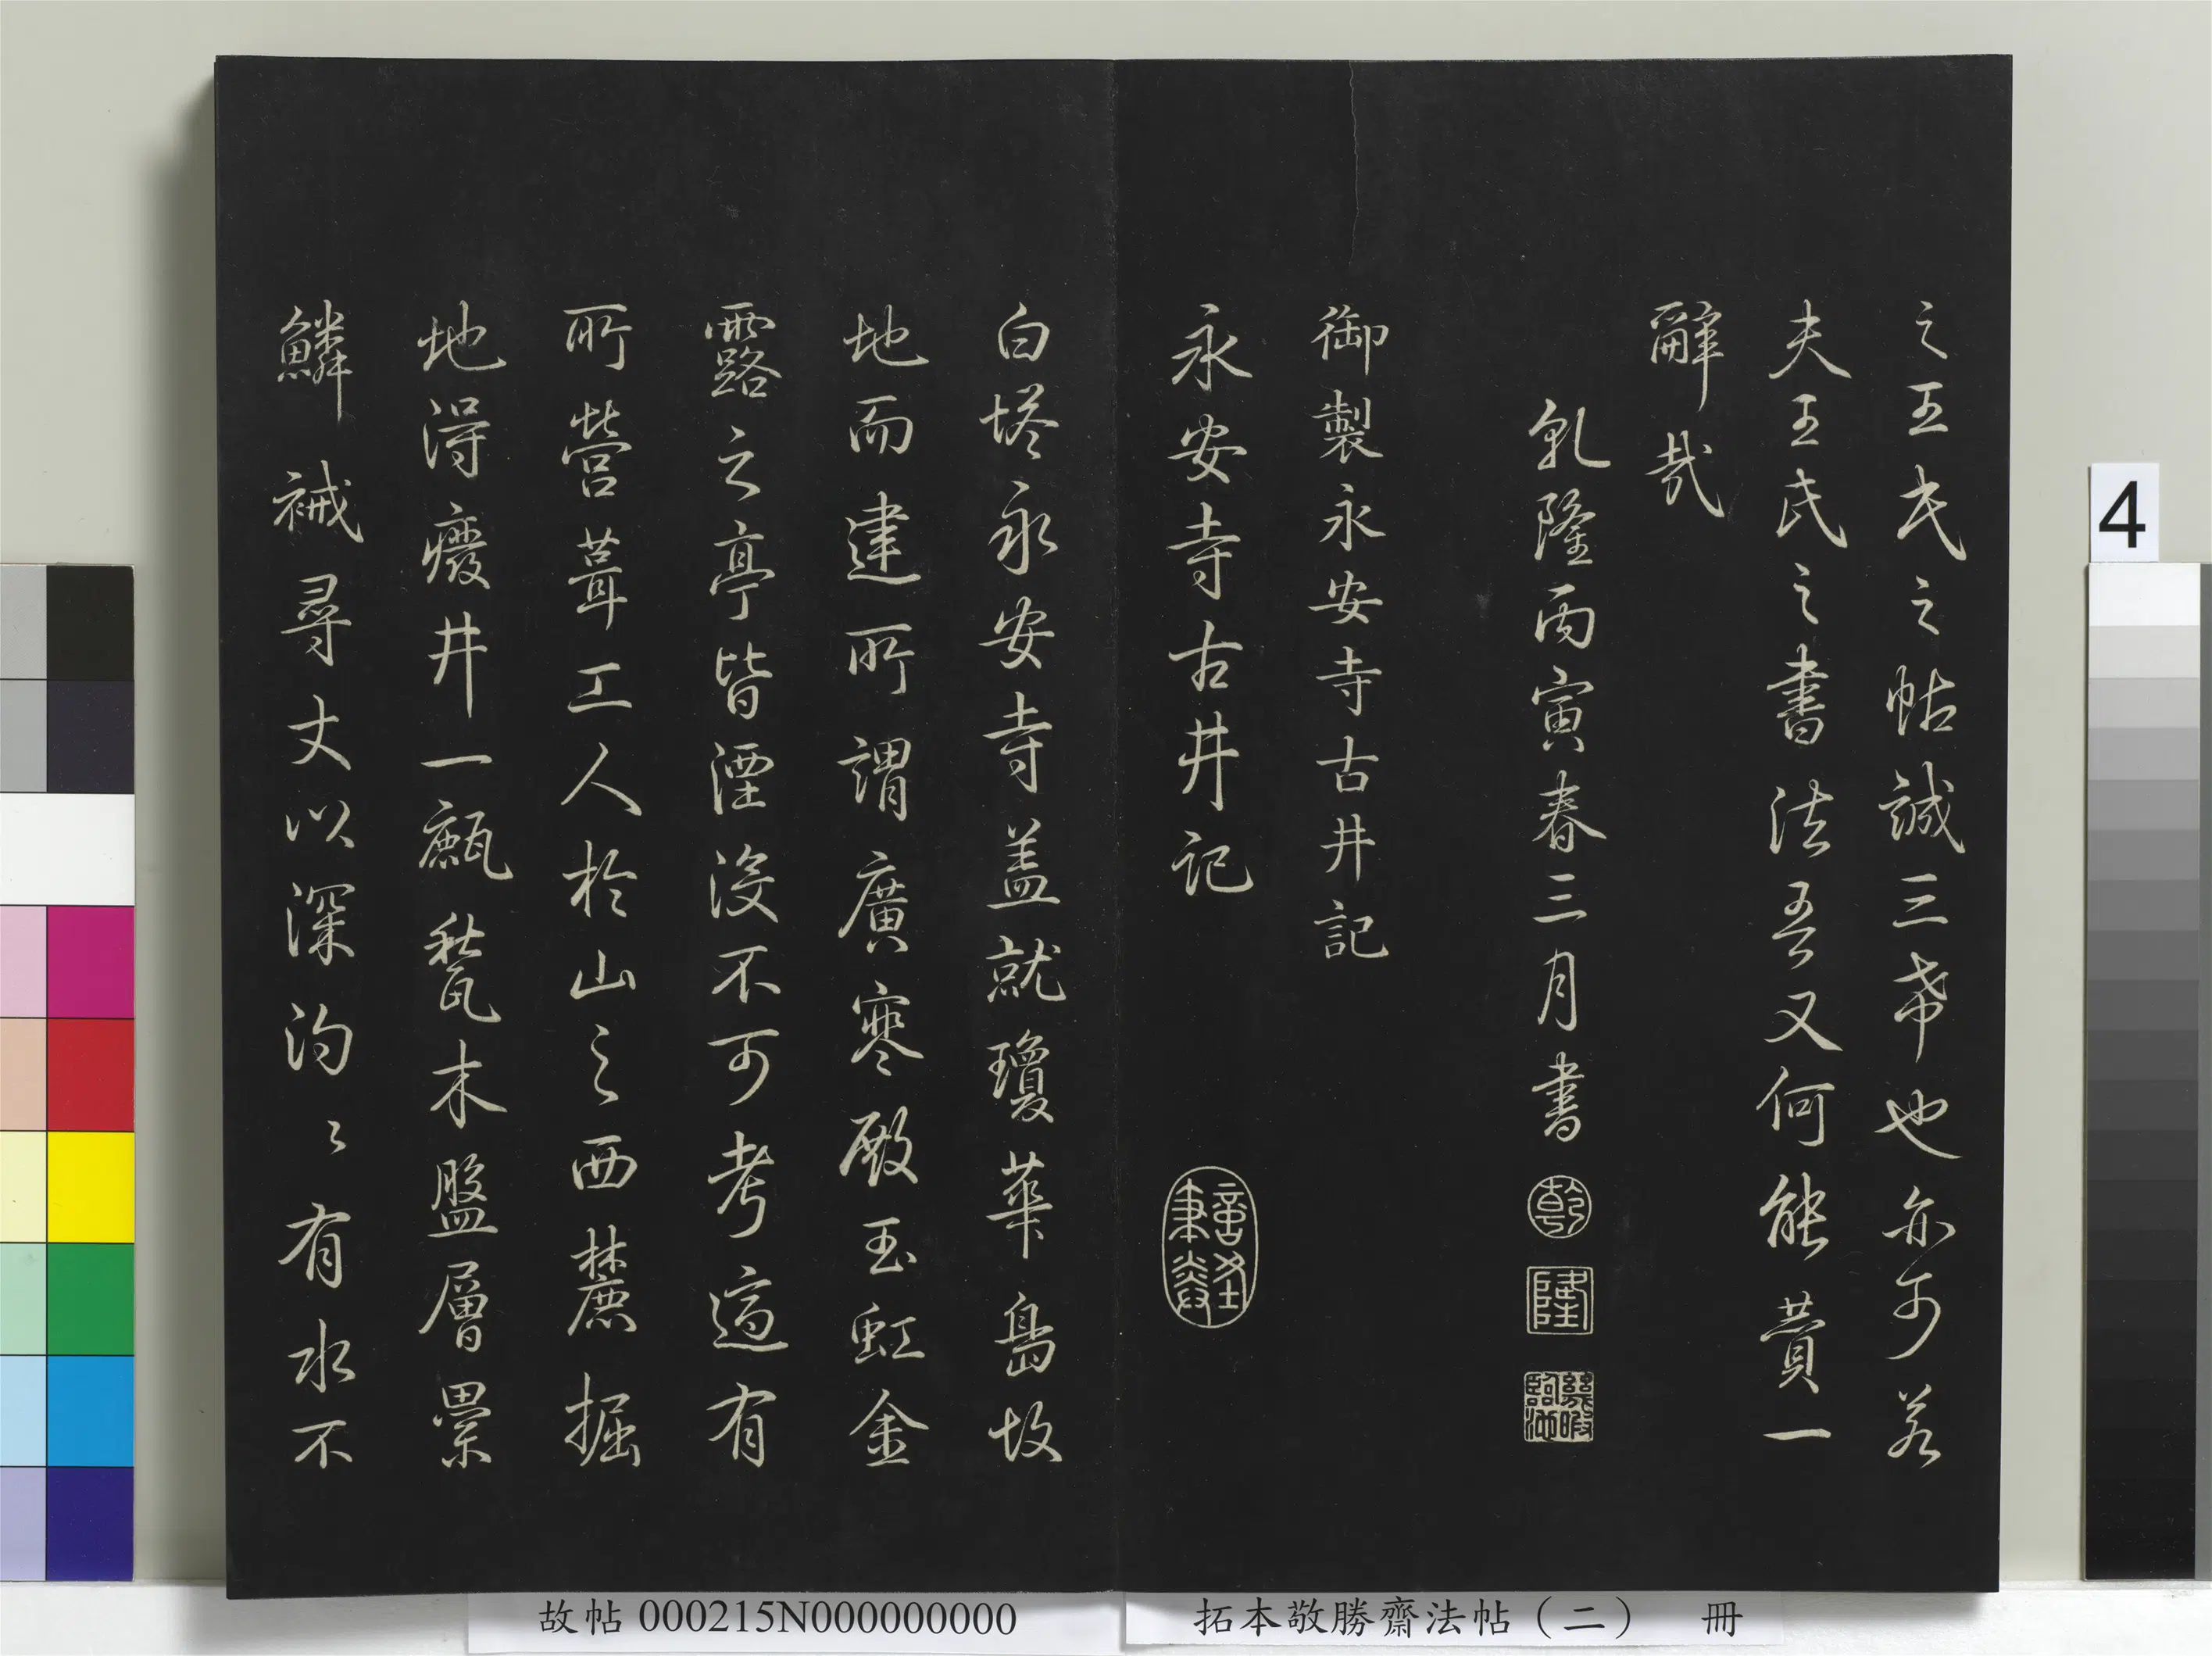 之王氏之帖誠三希也亦可若
夫王氏之書法吾又何能贊一
辭哉
乹隆丙寅春三月書
乾
隆
幾暇臨池
御製永安寺古井記
永安寺古井记
白塔永安寺盖就瓊華島故
地而建所謂廣寒殿玉虹金
露之亭皆湮没不可考適有
所營葺工人於山之西麓掘
地得廢井一甋甃木盤層纍
鱗裓尋丈以深沟〻有水不
4
故帖 000215N000000000
拓本敬勝齋法帖（二） 冊